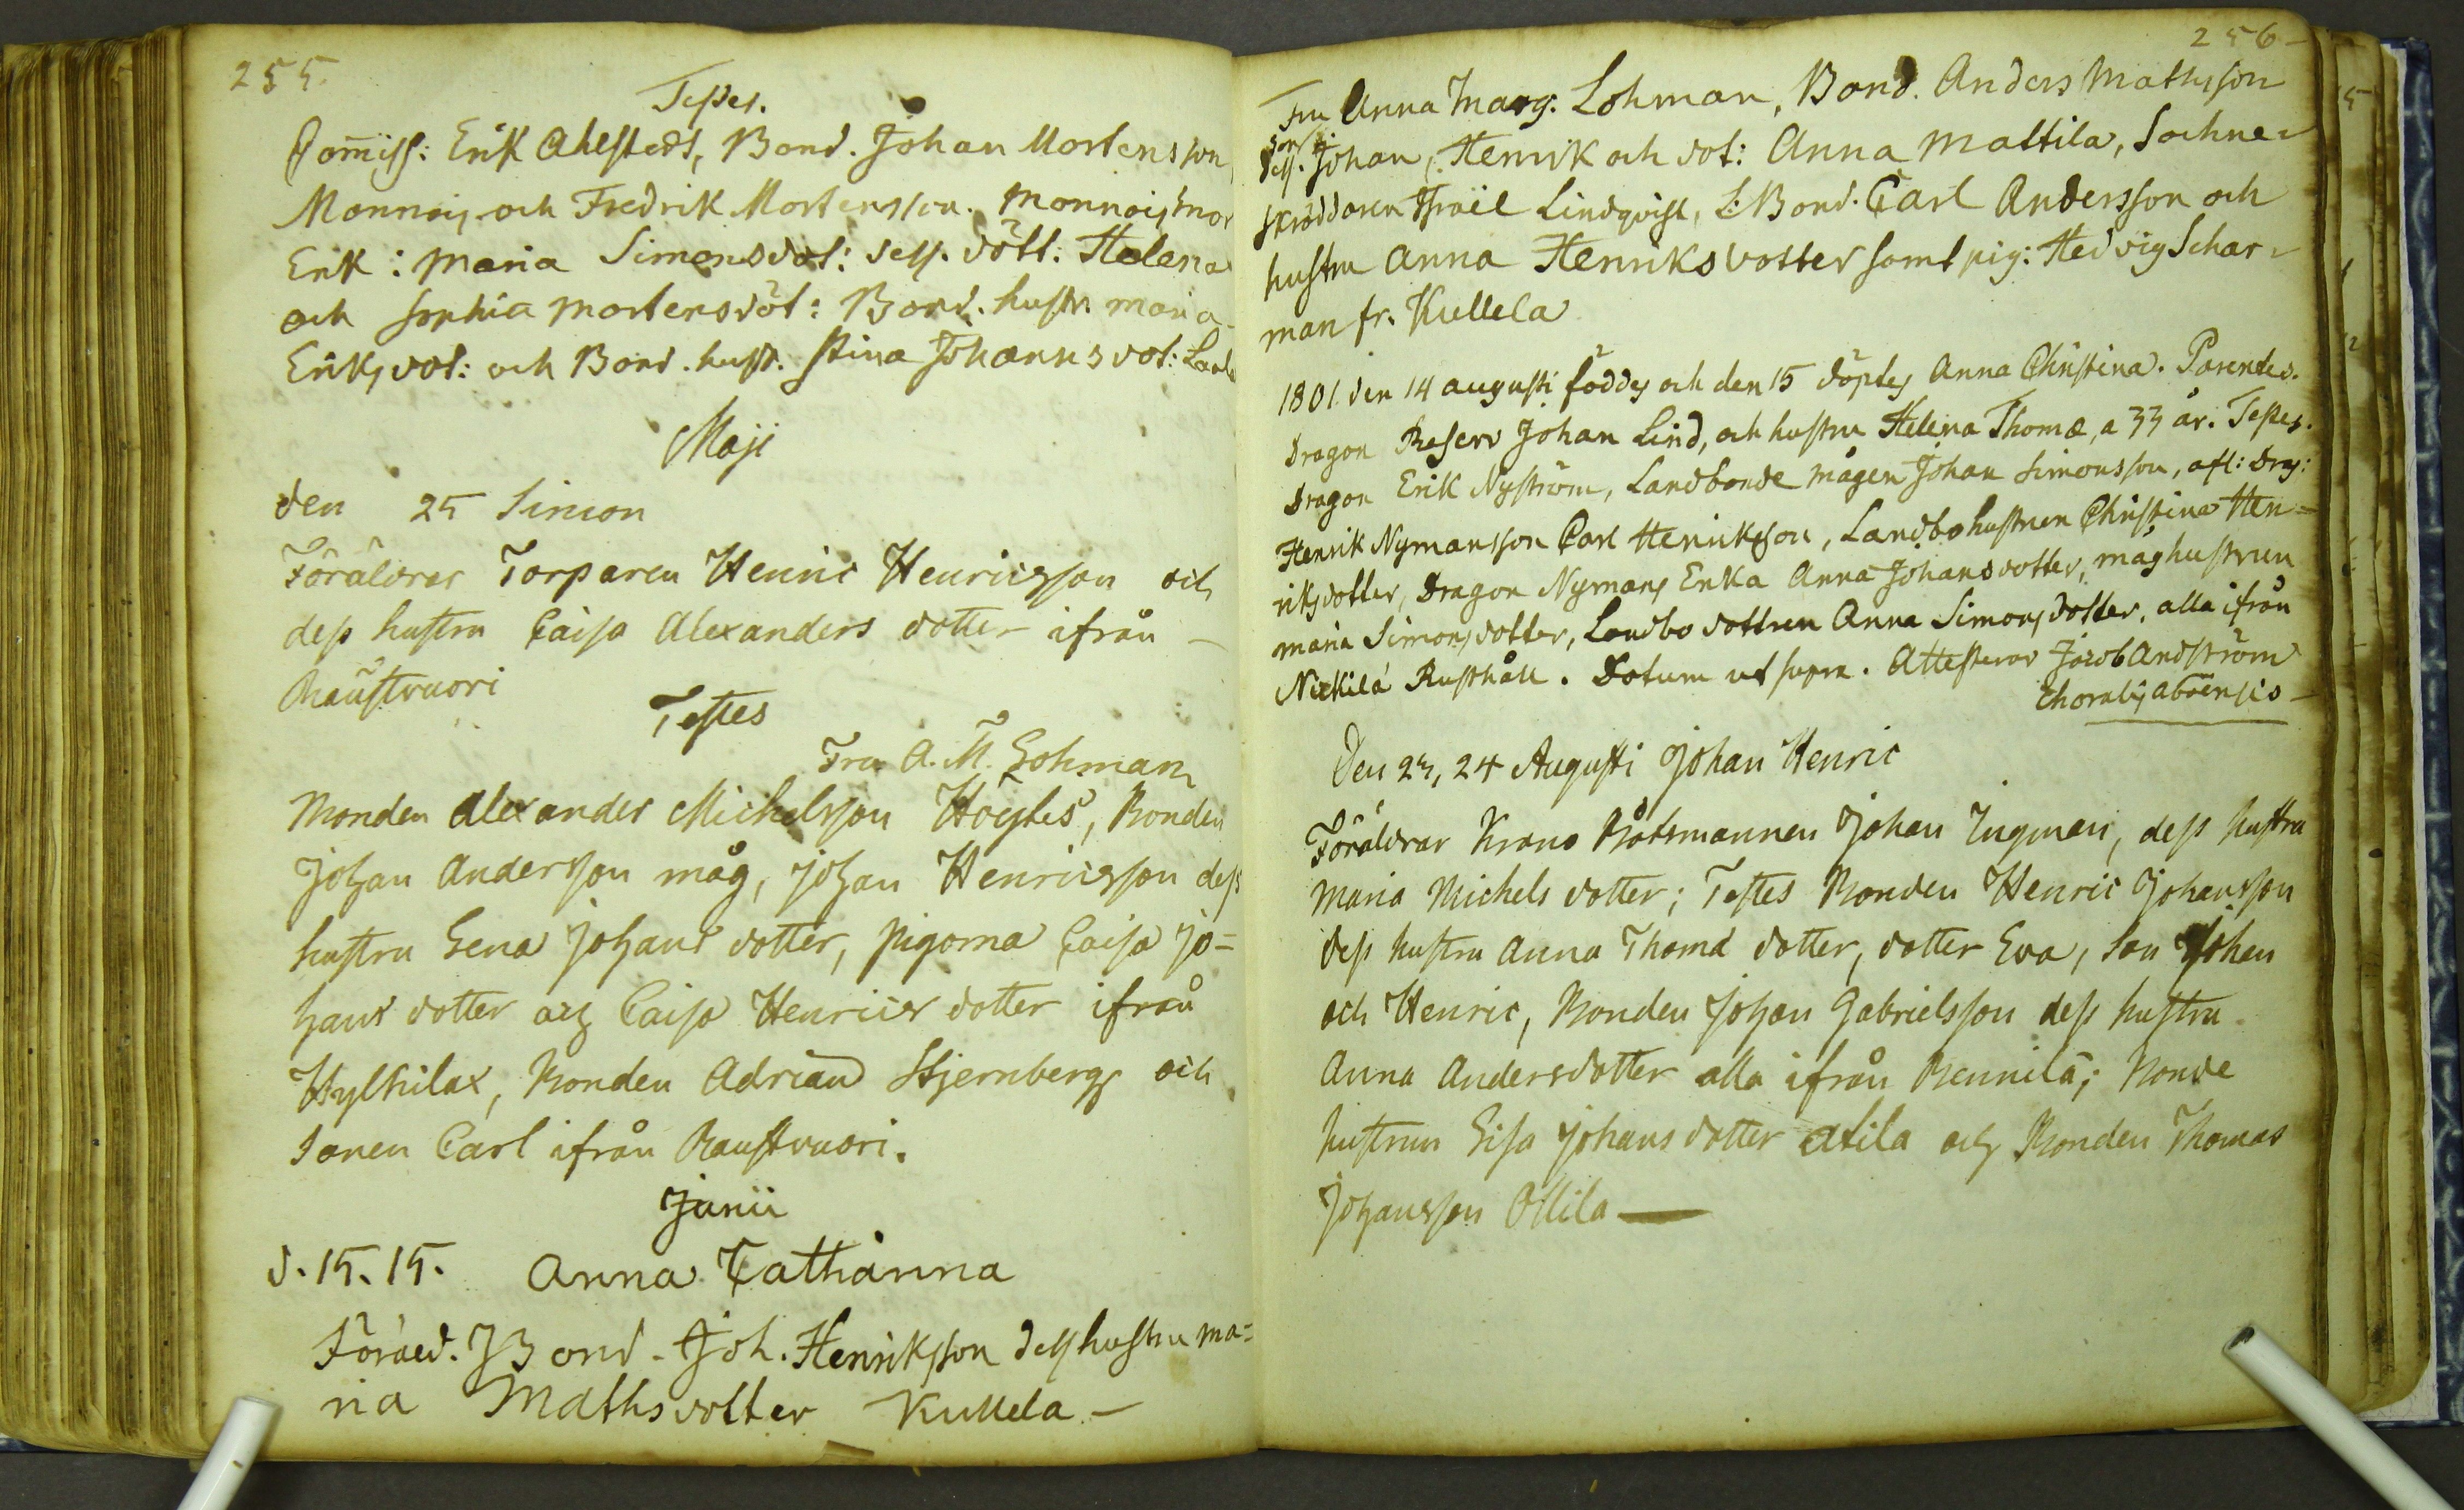 255.
Testes.
Com̄iss: Erik Ahlstedt, Bond. Johan Mortensson,
Monnois och Fredrik Mortensson. Monnois mor
Erik: Maria Simonsdot: dess. dött: Helena
och Sophia Mortensdöt: Bond. hustr. Maria
Eriksdot: och Bond. hust. Stina Johansdot:
Maji
den 25 Simon
Föräldrar Torparen Henric Henricsson och
dess hustru Caisa Alexanders dotter ifrån –
Raustvuori
Testes
Fru A. M. Lohman
Bonden Alexander Michelsson Höylis, Bonden
Johan Andersson måg, Johan Henricsson dess
hustru Lena Johans dotter, pigorna Caisa Jo=
hans dotter och Caisa Henrics dotter ifrån
Hylkilax, Bonden Adrian Stjernberg och
Sonen Carl ifrån Raustvuori.
Junii
d. 15. 15. Anna Catharina
Föräld. Bond. Joh. Henriksson dess hustru Ma=
ria Mathsdotter Kullela –
256 –
Fru Anna Marg: Lohman, Bond. Anders Mathsson
Son
dess. Johan, Henrik och dot: Anna Mattila, Sochne=
skräddaren Israël Lindqvist, L: Bond. Carl Andersson och
hustru Anna Henriksdotter samt pig: Hedvig Schar=
man fr. Kullela
1801 den 14 augusti föddes och den 15 döptes Anna Christina. Parentes.
Dragon Reserv Johan Lind, och hustru Helena Thomæ, a 33 år. Testes.
Dragon Erik Nyström, Landbonde mågen Johan Simonsson, afl: Drag:
Henrik Nymansson Carl Henriksson, Landbohustrun Christina Hen=
riksdotter, Dragon Nymans Enka Anna Johansdotter, måghustrun
Maria Simonsdotter, Landbo dottren Anna Simonsdotter, alla ifrån
Nickilä Rusthåll. Datum ut supra. Attesterar Jacob Andström
Choralis Aboënsis –
Den 23, 24 Augusti Johan Henric
Föräldrar Krono Båtsmannen Johan Ingman, dess hustru
Maria Michels dotter; Testes Bonden Henric Johansson
dess hustru Anna Thomæ dotter, dotter Eva, Son Johan
och Henric, Bonden Johan Gabrielsson dess hustru
Anna Andersdotter alla ifrån Rennilä; Bonde
hustrun Lisa Johans dotter Atila och Bonden Thomas
Johansson Ollila —